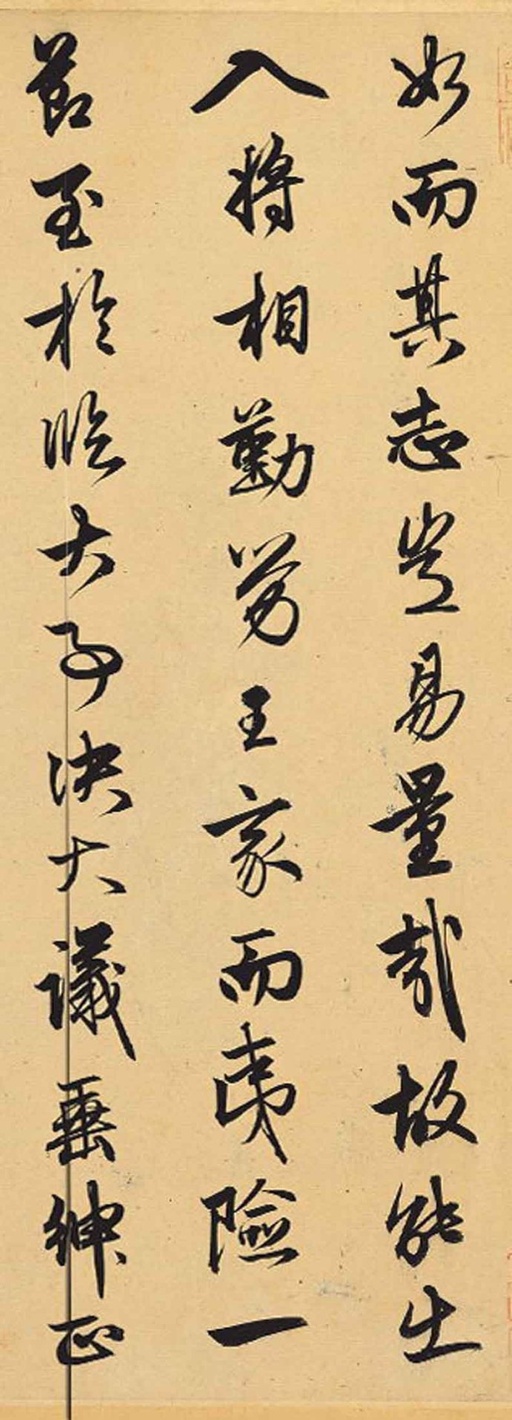 如而其志豈易量哉故能出
入將相勤勞王家而夷險一
節至於臨大事決大議垂紳正